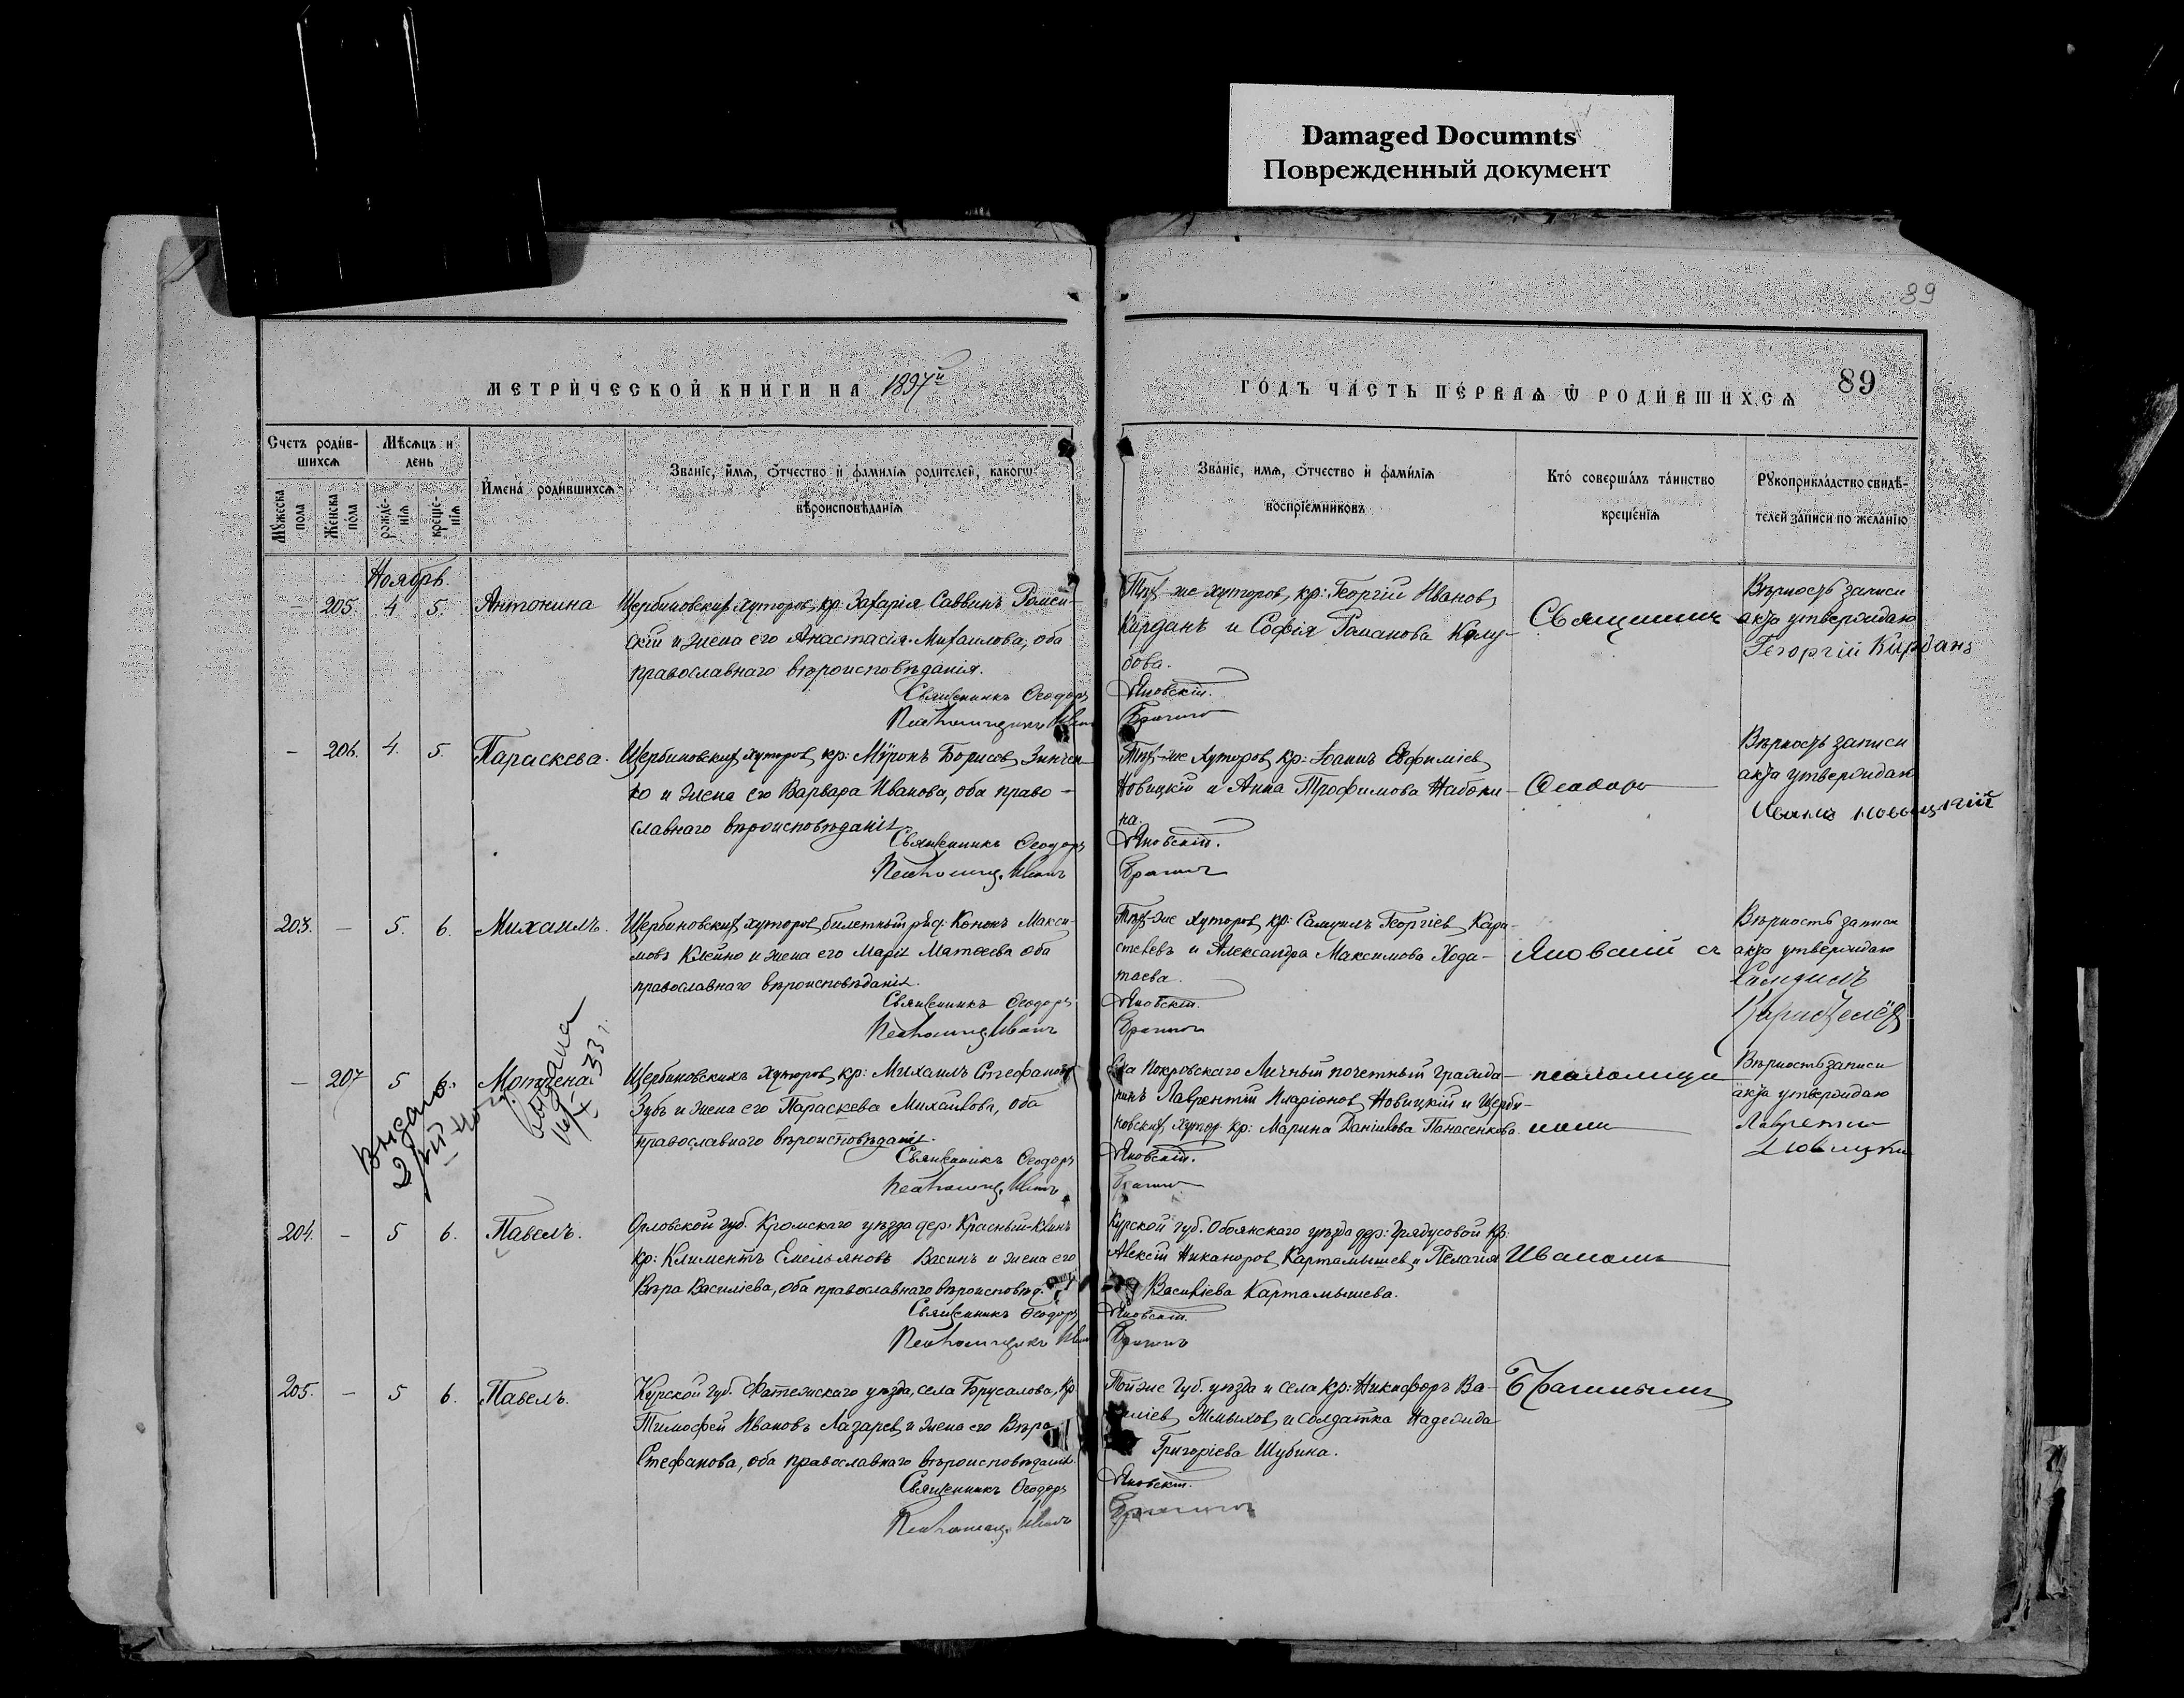 Damaged Documnts
Поврежденный документ
89
МЕТРИЧЕСКОЙ КНИГИ НА 1897й
ГОДЪ ЧАСТЬ ПЕРВАѦ Ѿ РОДИВШИХСѦ 89
Счетъ родив-
шихсѧ
Мѣсѧцъ и
день
Мꙋжеска пола
Женска пола
рожде-
нїѧ
креще-
нїѧ
Имена родившихсѧ
Званїе, имѧ, ѻтчество и фамилїѧ родителей, какогѡ
вѣроисповѣданїѧ
Званїе, имѧ, ѻтчество и фамилїѧ
воспрїемниковъ
Кто совершалъ таинство
крещенїѧ
Рꙋкоприкладство свидѣ-
телей записи по желанїю
Ноябрь.
– 205. 4 5. Антонина
Щербиновских хуторов, кр: Захарія Саввинъ Ромен-
скій и жена его Анастасія Михаилова, оба
православнаго вѣроисповѣданія.
Священникъ Ѳеодоръ
Псаломщикъ Иван
Тѣх-же хуторов, кр: Георгій Иванов
Кирданъ и Софія Романова Колу-
бова.
Яновскій.
Священник
Вѣрность записи
акта утверждаю
Георгій Кирданъ
– 206. 4. 5. Параскева.
Щербиновских хуторов, кр: Мѵронъ Борисов Зинчен-
ко и жена его Варвара Иванова, оба право-
славнаго вѣроисповѣданія
Священникъ Ѳеодоръ
Псаломщ. Иванъ
Тѣх-же хуторов, кр: Іоаннъ Евфиміев
Новицкій и Анна Трофимова Набоки-
на.
Яновскій.
Ѳеодоръ
Вѣрность записи
акта утверждаю
Иванъ Новицкій
203. – 5. 6. Михаилъ.
Щербиновских хуторов, билетный ряд: Кононъ Макси-
мовъ Клейно и жена его Марія Матѳеева оба
православнаго вѣроисповѣданія.
Священникъ Ѳеодоръ
Псаломщ. Иванъ
Тѣх-же хуторов, кр: Самуилъ Георгіев Кари-
стелевъ и Александра Максимова Хода-
таева.
Яновскій.
Яновский съ
Вѣрность записи
акта утверждаю
Самуилъ
– 207 5 6.
выдана
Щербиновскихъ хуторов, кр: Михаилъ Стефанов
Зубъ и жена его Параскева Михаилова, оба
православнаго вѣроисповѣданія.
Священникъ Ѳеодоръ
Псаломщ. Иванъ
Села Покровскаго Личный почетный гражда-
нинъ Лаврентій Иларіонов Новицкій и Щерби-
новских хутор. кр: Марина Даніилова Панасенкова.
Яновскій.
псаломщи-
комъ
Вѣрность записи
акта утверждаю
Лаврентій
Новицкій
204. – 5 6. Павелъ.
Орловской губ. Кромскаго уѣзда дер:
кр: Климентъ Емельяновъ Васинъ и жена его
Вѣра Василіева, оба православнаго вѣроисповѣд.
Священникъ Ѳеодоръ
Псаломщикъ Иван
Курской губ. Обоянскаго уѣзда дер: Грядусовой кр:
Алексій Никаноров Картамышев и Пелагія
Василіева Картамышева.
Яновскій.
Иваномъ
205. – 5 6. Павелъ.
Курской губ. Фатежскаго уѣзда, села Брусалова, кр
Тимофей Ивановъ Лазарев и жена его Вѣра
Стефанова, оба православнаго вѣроисповѣданія.
Священникъ Ѳеодоръ
Псаломщ. Иванъ
Той же губ. уѣзда и села кр: Никифоръ Ва-
силіев и солдатка Надежда
Григоріева Шубина.
Яновскій.